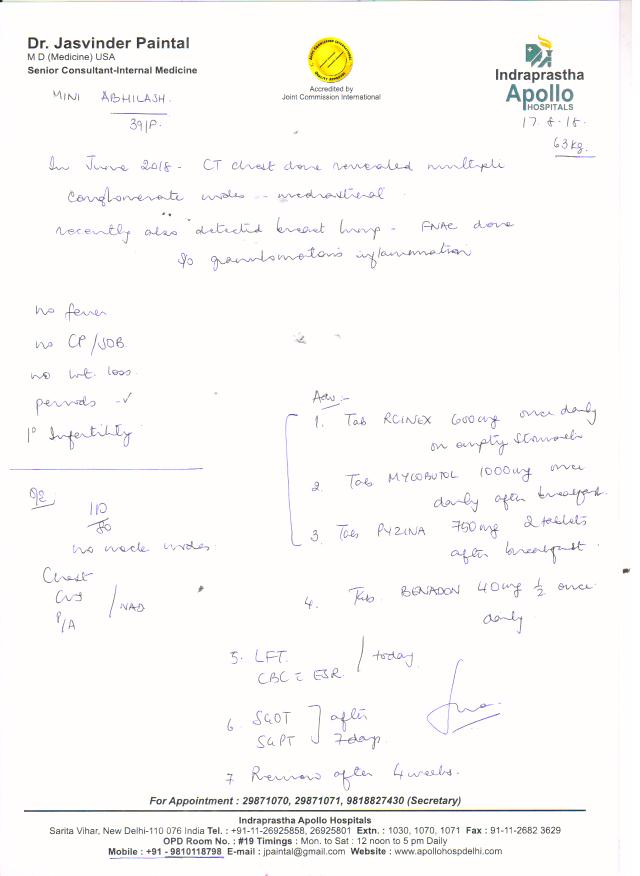 Dr. Jasvinder Paintal
M D (Medicine) USA
Senior Consultant-Internal Medicine
JOINT COMMISSION INTERNATIONAL
QUALITY APPROVAL
Accredited by
Joint Commission International
Indraprastha
Apollo
HOSPITALS
MINI ABHILASH.
39/F.
17.8.18.
63kg.
In June 2018 - CT chest done revealed multiple
Conglomerate nodes -- mediastinal.
recently also detected breast lump - FNAC done
s/o granulomatous inflammation
no fever
no CP/SOB.
no wt. loss.
periods - ✓
1° Infertility
O/E
110
/80
no neck nodes
Chest
CVS
P/A
/ NAD
Adv:-
1. Tab RCINEX 600mg once daily
on empty stomach
2. Tab MYCOBUTOL 1000mg once
daily after breakfast.
3. Tab PYZINA 750mg 2 tablets
after breakfast.
4. Tab. BENADON 40mg ½ once
daily.
5. LFT.
CBC c̄ ESR.
/ today
6. SGOT
SGPT
] after
7 days
7 Review after 4 weeks.
For Appointment : 29871070, 29871071, 9818827430 (Secretary)
Indraprastha Apollo Hospitals
Sarita Vihar, New Delhi-110 076 India Tel. : +91-11-26925858, 26925801 Extn. : 1030, 1070, 1071 Fax : 91-11-2682 3629
OPD Room No. : #19 Timings : Mon. to Sat : 12 noon to 5 pm Daily
Mobile : +91 - 9810118798 E-mail : jpaintal@gmail.com Website : www.apollohospdelhi.com